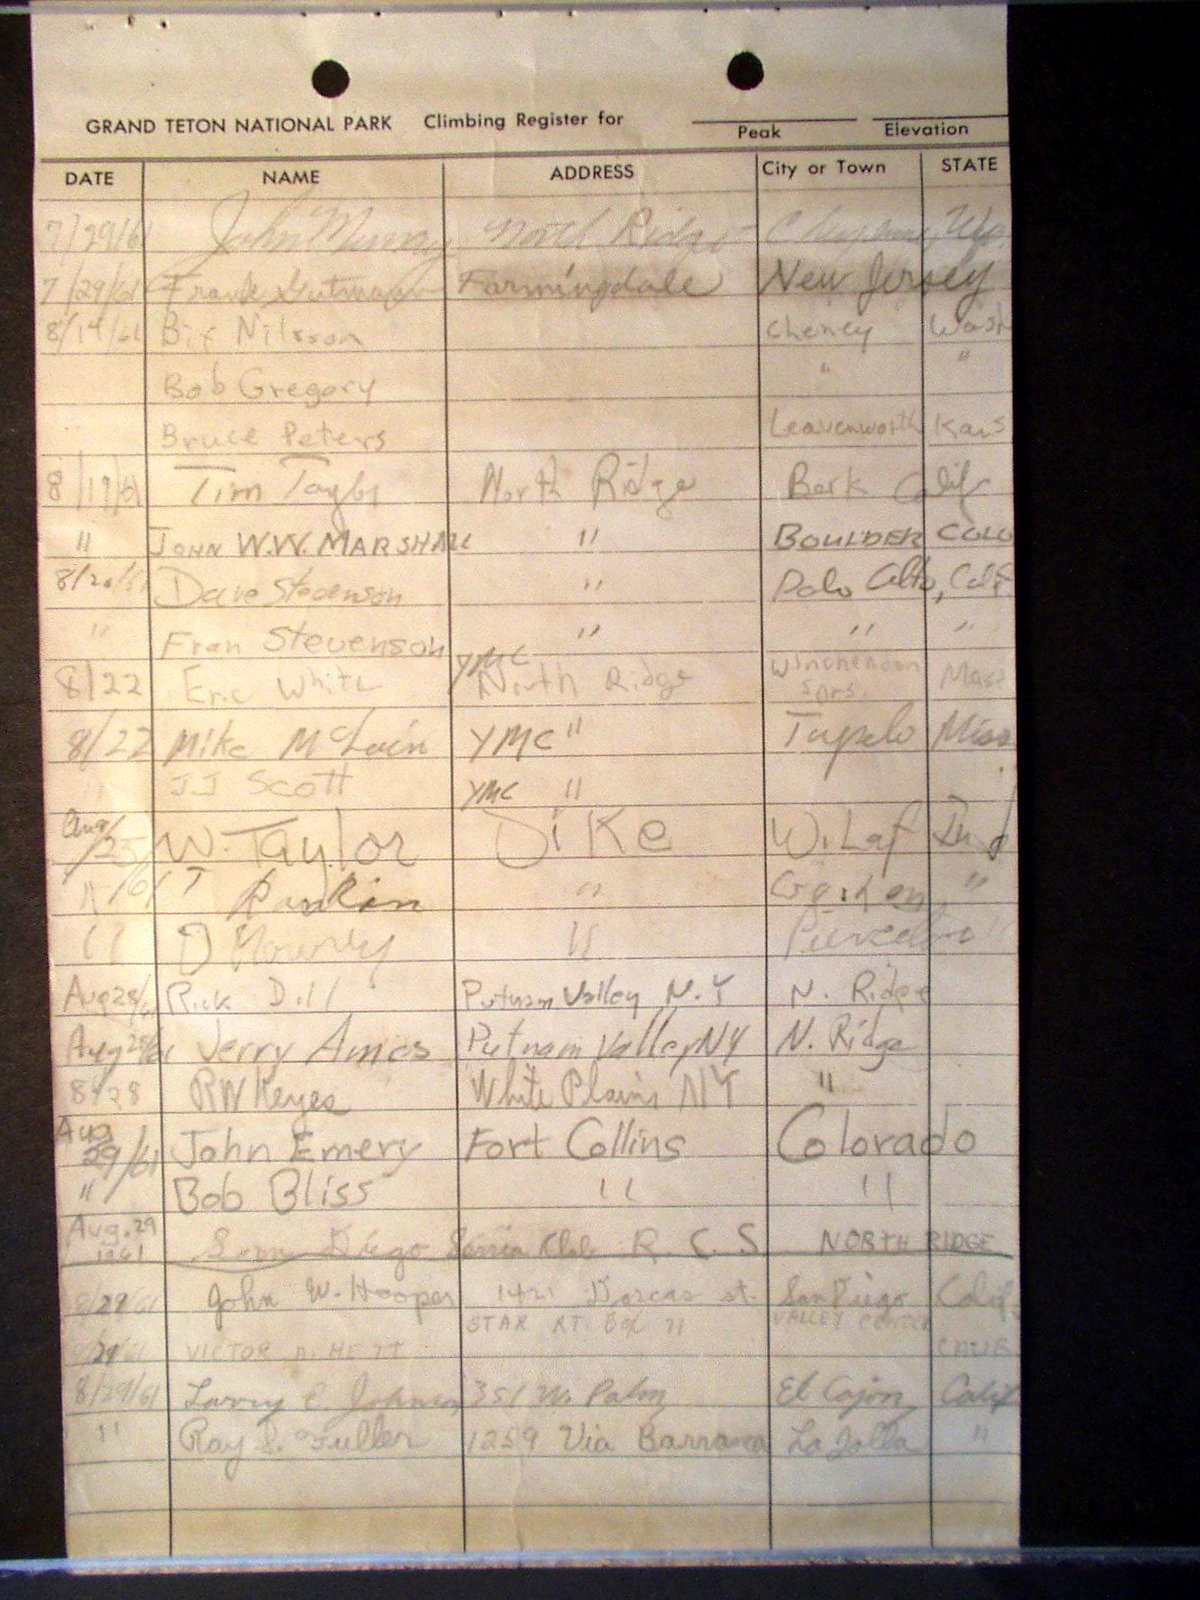 GRAND TETON NATIONAL PARK Climbing Register for
Peak Elevation
DATE NAME ADDRESS City or Town STATE
7/29/61 John Murray North Ridge Cheyenne, Wyo.
7/29/61 Frank Gutmann Farmingdale New Jersey
8/14/61 Bif Nilsson Cheney Wash
Bob Gregory " "
Bruce Peters Leavenworth Kans
8/19/61 Tim Taylor North Ridge Berk Calif
" JOHN W.W. MARSHALL " BOULDER COLO
8/20/61 Dave Stevenson " Palo Alto, Calif
" Fran Stevenson " " "
8/22 Eric White YMC North Ridge Winchendon Sprs. Mass
8/22 Mike McLain YMC " Tupelo Miss
" JJ Scott YMC "
Aug/25/61 W. Taylor Dike W. Laf Ind
" T Rankin " Goshen "
" D "
Aug 28/61 Rick Dill Putnam Valley N.Y N. Ridge
Aug 28/61 Jerry Ames Putnam Valley NY N. Ridge
8/28 RW Keyes White Plains NY "
Aug 29/61 John Emery Fort Collins Colorado
" Bob Bliss " "
Aug. 29 1961 San Diego Sierra Club R. C. S NORTH RIDGE
8/29/61 John W. Hooper Dorcas st. San Diego Calif
STAR RT. BOX 71 VALLEY CENTER
/29/61 VICTOR A. HETT CALIF
8/29/61 Larry E. Johnson 351 W. Palm El Cajon, Calif
" Ray S. Fuller 1259 Via Barranca La Jolla "